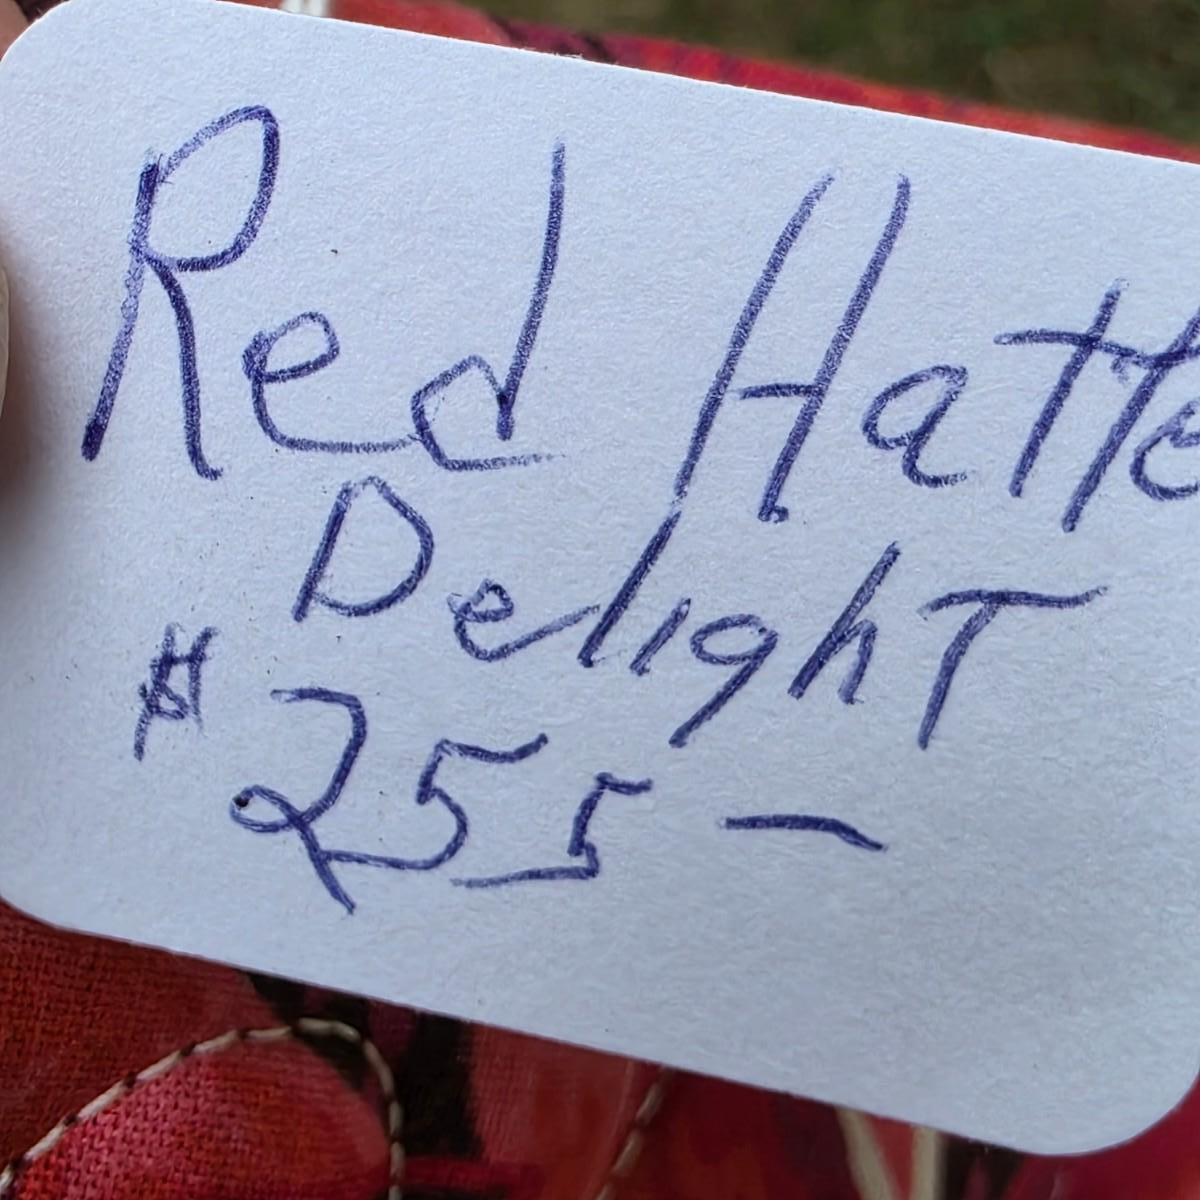 Red Hatte
Delight
$255 —